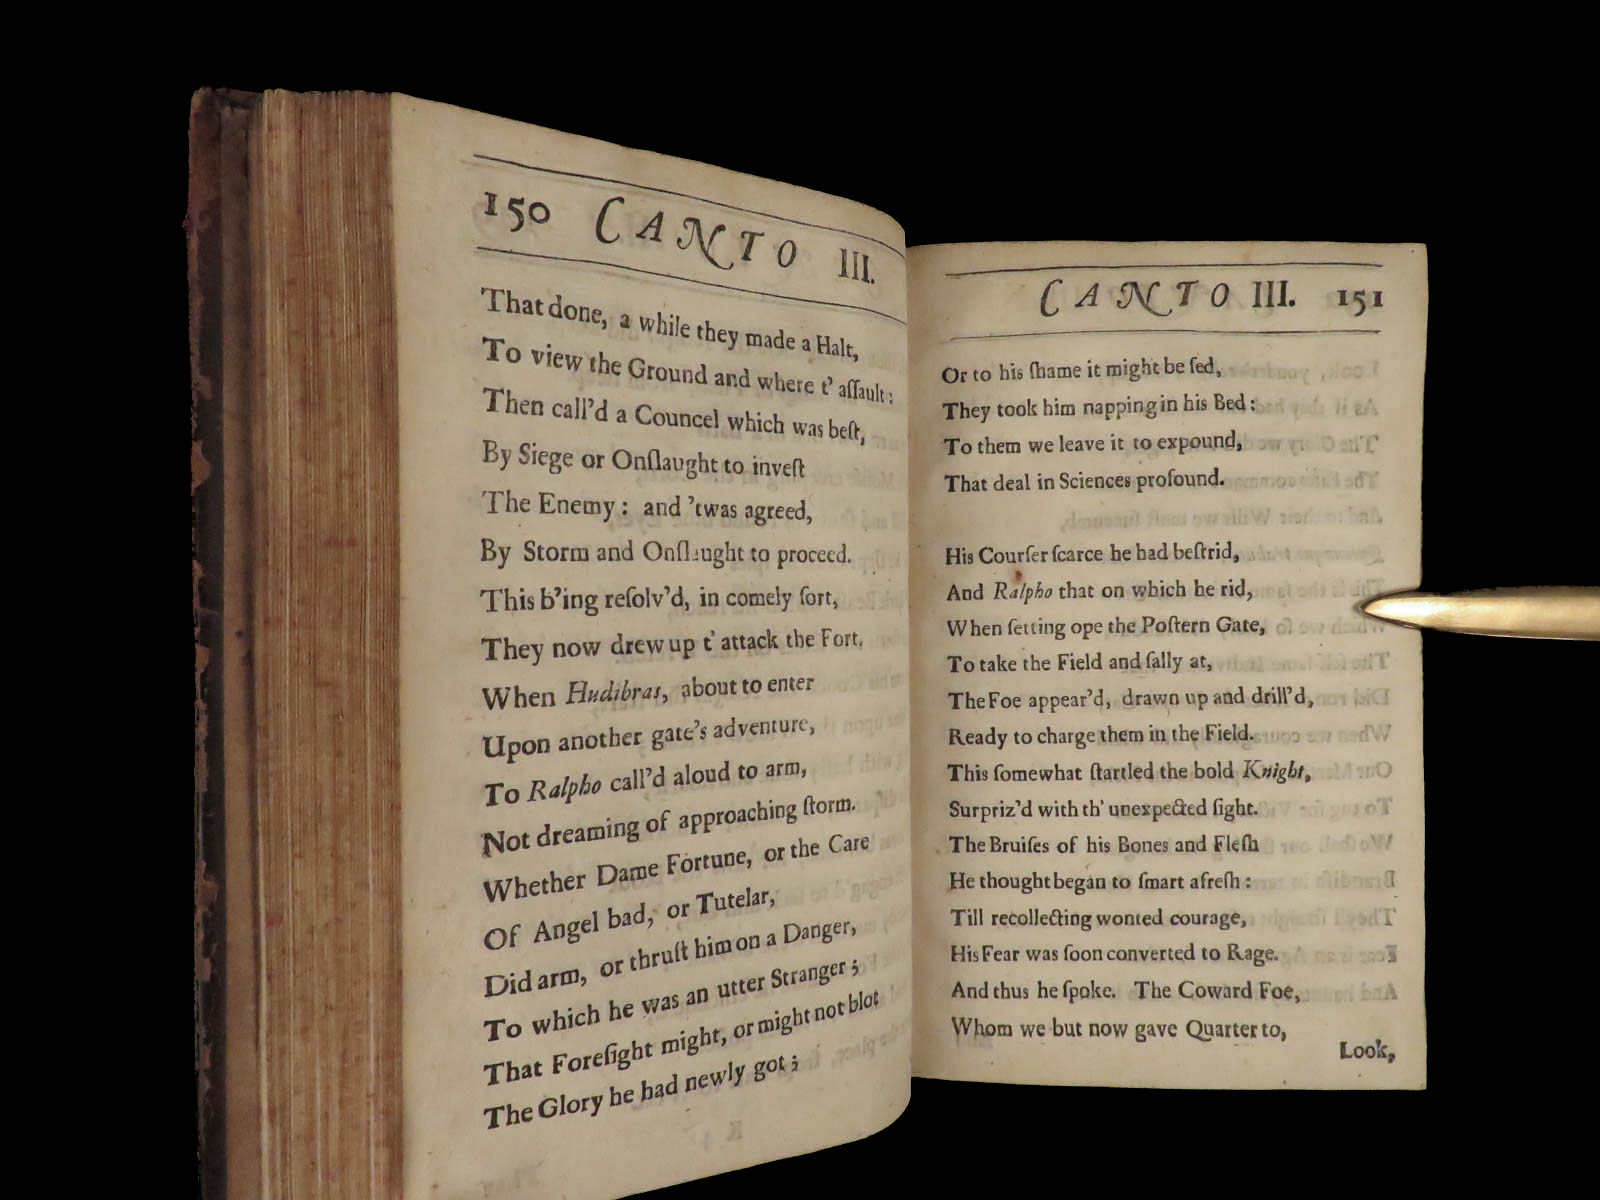 150 CANTO III.
That done, a while they made a Halt,
To view the Ground and where t' aſſault:
Then call'd a Councel which was beſt,
By Siege or Onſlaught to inveſt
The Enemy: and 'twas agreed,
By Storm and Onſlaught to proceed.
This b'ing reſolv'd, in comely ſort,
They now drew up t' attack the Fort.
When Hudibras, about to enter
Upon another gate's adventure,
To Ralpho call'd aloud to arm,
Not dreaming of approaching ſtorm.
Whether Dame Fortune, or the Care
Of Angel bad, or Tutelar,
Did arm, or thruſt him on a Danger,
To which he was an utter Stranger;
That Foreſight might, or might not blot
The Glory he had newly got;
CANTO III. 151
Or to his ſhame it might be ſed,
They took him napping in his Bed:
To them we leave it to expound,
That deal in Sciences profound.
His Courſer ſcarce he had beſtrid,
And Ralpho that on which he rid,
When ſetting ope the Poſtern Gate,
To take the Field and ſally at,
The Foe appear'd, drawn up and drill'd,
Ready to charge them in the Field.
This ſomewhat ſtartled the bold Knight,
Surpriz'd with th' unexpected ſight.
The Bruiſes of his Bones and Fleſh
He thought began to ſmart afreſh:
Till recollecting wonted courage,
His Fear was ſoon converted to Rage.
And thus he ſpoke. The Coward Foe,
Whom we but now gave Quarter to,
Look,